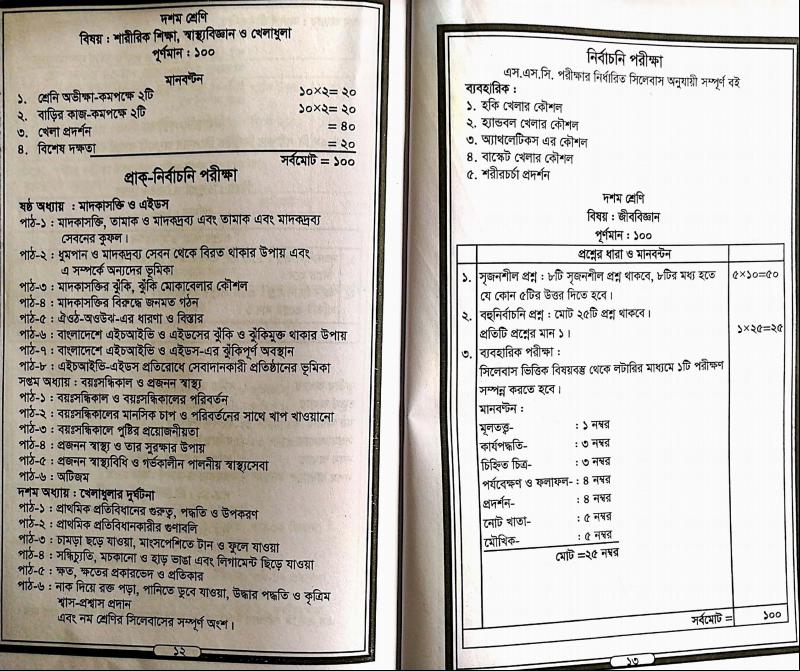 দশম শ্রেণি
বিষয় : শারীরিক শিক্ষা, স্বাস্থ্যবিজ্ঞান ও খেলাধুলা
পূর্ণমান : ১০০
মানবণ্টন
১। শ্রেনি অভীক্ষা-কমপক্ষে ২টি ১০×২= ২০
২। বাড়ির কাজ-কমপক্ষে ২টি ১০×২= ২০
৩। খেলা প্রদর্শন = ৪০
৪। বিশেষ দক্ষতা = ২০
সর্বমোট = ১০০
প্রাক্-নির্বাচনি পরীক্ষা
ষষ্ঠ অধ্যায় : মাদকাসক্তি ও এইডস
পাঠ-১ : মাদকাসক্তি, তামাক ও মাদকদ্রব্য এবং তামাক এবং মাদকদ্রব্য
সেবনের কুফল।
পাঠ-২ : ধুমপান ও মাদকদ্রব্য সেবন থেকে বিরত থাকার উপায় এবং
এ সম্পর্কে অন্যদের ভূমিকা
পাঠ-৩ : মাদকাসক্তির ঝুঁকি, ঝুঁকি মোকাবেলার কৌশল
পাঠ-৪ : মাদকাসক্তির বিরুদ্ধে জনমত গঠন
পাঠ-৫ : ঐওঠ-অওউঝ-এর ধারণা ও বিস্তার
পাঠ-৬ : বাংলাদেশে এইচআইভি ও এইডসের ঝুঁকি ও ঝুঁকিমুক্ত থাকার উপায়
পাঠ-৭ : বাংলাদেশে এইচআইভি ও এইডস-এর ঝুঁকিপূর্ণ অবস্থান
পাঠ-৮ : এইচআইভি-এইডস প্রতিরোধে সেবাদানকারী প্রতিষ্ঠানের ভূমিকা
সপ্তম অধ্যায় : বয়ঃসন্ধিকাল ও প্রজনন স্বাস্থ্য
পাঠ-১ : বয়ঃসন্ধিকাল ও বয়ঃসন্ধিকালের পরিবর্তন
পাঠ-২ : বয়ঃসন্ধিকালের মানসিক চাপ ও পরিবর্তনের সাথে খাপ খাওয়ানো
পাঠ-৩ : বয়ঃসন্ধিকালে পুষ্টির প্রয়োজনীয়তা
পাঠ-৪ : প্রজনন স্বাস্থ্য ও তার সুরক্ষার উপায়
পাঠ-৫ : প্রজনন স্বাস্থ্যবিধি ও গর্ভকালীন পালনীয় স্বাস্থ্যসেবা
পাঠ-৬ : অটিজম
দশম অধ্যায় : খেলাধুলার দুর্ঘটনা
পাঠ-১ : প্রাথমিক প্রতিবিধানের গুরুত্ব, পদ্ধতি ও উপকরণ
পাঠ-২ : প্রাথমিক প্রতিবিধানকারীর গুণাবলি
পাঠ-৩ : চামড়া ছড়ে যাওয়া, মাংসপেশিতে টান ও ফুলে যাওয়া
পাঠ-৪ : সন্ধিচ্যুতি, মচকানো ও হাড় ভাঙা এবং লিগামেন্ট ছিঁড়ে যাওয়া
পাঠ-৫ : ক্ষত, ক্ষতের প্রকারভেদ ও প্রতিকার
পাঠ-৬ : নাক দিয়ে রক্ত পড়া, পানিতে ডুবে যাওয়া, উদ্ধার পদ্ধতি ও কৃত্রিম
শ্বাস-প্রশ্বাস প্রদান
এবং নম শ্রেণির সিলেবাসের সম্পূর্ণ অংশ।
১২
নির্বাচনি পরীক্ষা
এস.এস.সি. পরীক্ষার নির্ধারিত সিলেবাস অনুযায়ী সম্পূর্ণ বই
ব্যবহারিক :
১. হকি খেলার কৌশল
২. হ্যান্ডবল খেলার কৌশল
৩. অ্যাথলেটিকস এর কৌশল
৪. বাস্কেট খেলার কৌশল
৫. শরীরচর্চা প্রদর্শন
দশম শ্রেণি
বিষয় : জীববিজ্ঞান
পূর্ণমান : ১০০
প্রশ্নের ধারা ও মানবণ্টন
১. সৃজনশীল প্রশ্ন : ৮টি সৃজনশীল প্রশ্ন থাকবে, ৮টির মধ্য হতে ৫×১০=৫০
যে কোন ৫টির উত্তর দিতে হবে।
২. বহুনির্বাচনি প্রশ্ন : মোট ২৫টি প্রশ্ন থাকবে।
প্রতিটি প্রশ্নের মান ১। ১×২৫=২৫
৩. ব্যবহারিক পরীক্ষা :
সিলেবাস ভিত্তিক বিষয়বস্তু থেকে লটারির মাধ্যমে ১টি পরীক্ষণ
সম্পন্ন করতে হবে।
মানবণ্টন :
মূলতত্ত্ব- : ১ নম্বর
কার্যপদ্ধতি- : ৩ নম্বর
চিহ্নিত চিত্র- : ৩ নম্বর
পর্যবেক্ষণ ও ফলাফল- : ৪ নম্বর
প্রদর্শন- : ৪ নম্বর
নোট খাতা- : ৫ নম্বর
মৌখিক- : ৫ নম্বর
মোট =২৫ নম্বর
সর্বমোট = ১০০
১৩